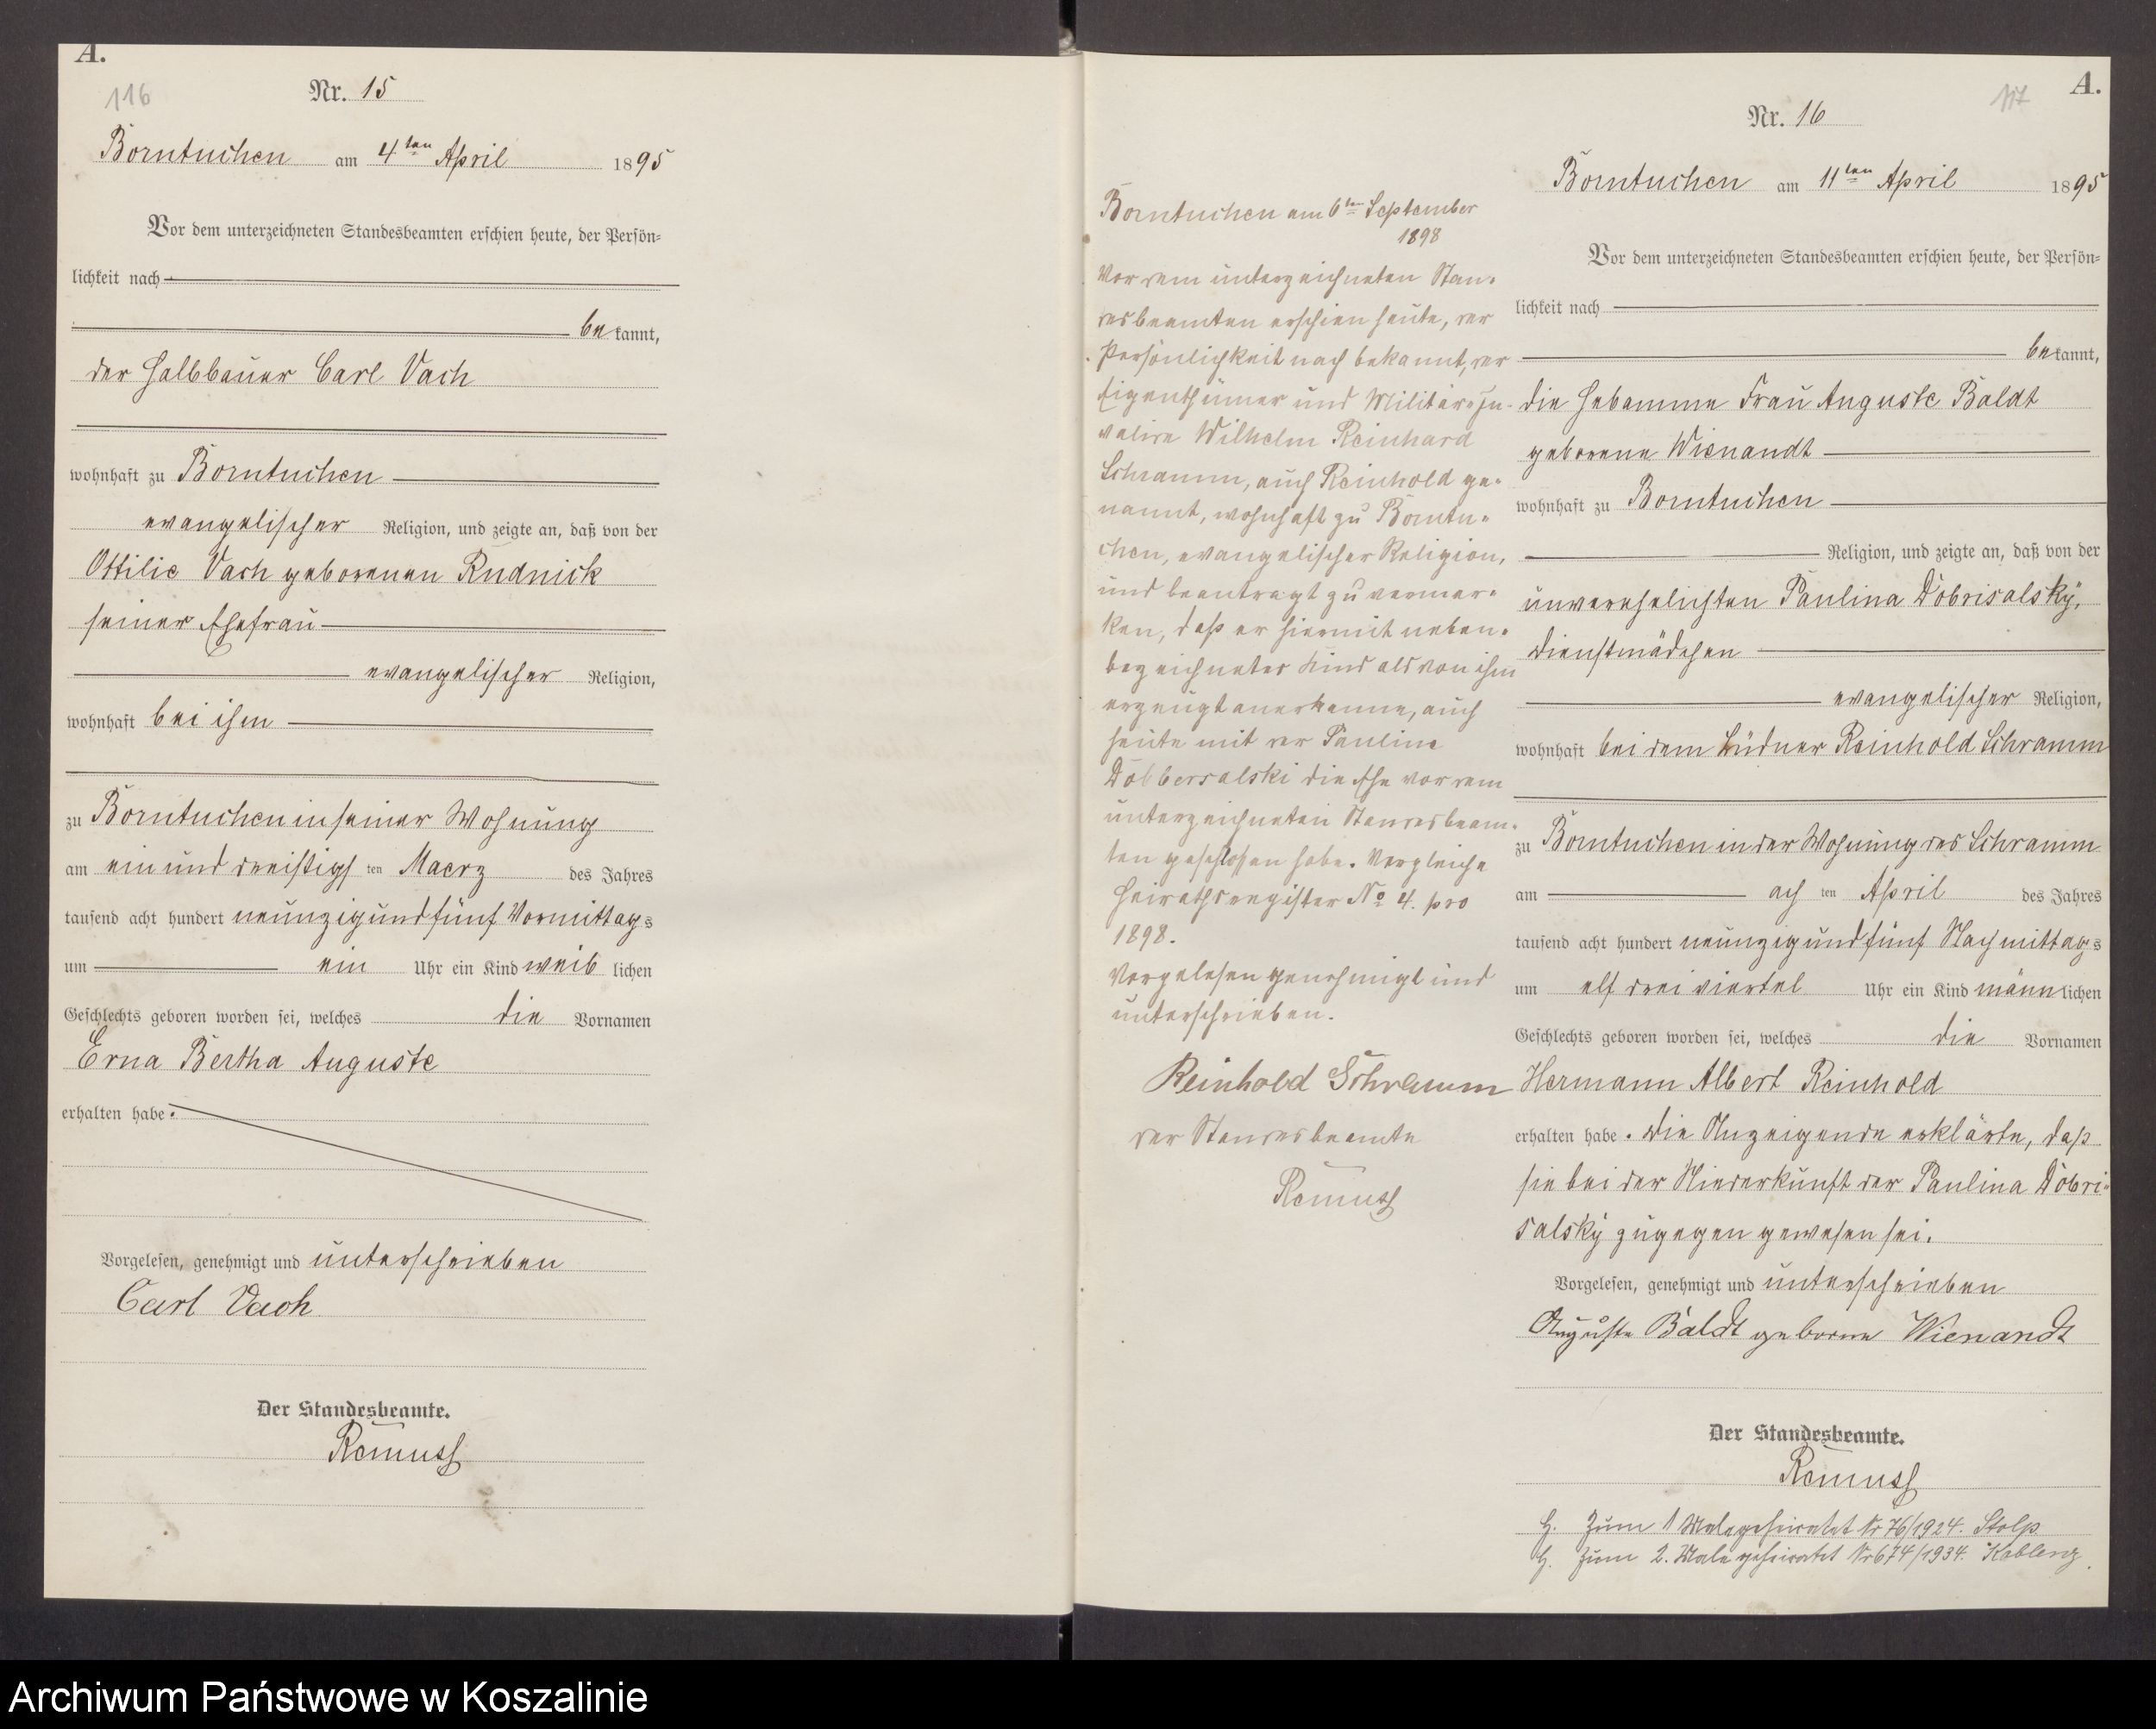 A.
116
Nr. 15
Borntuchen am 4ten April 1895
Vor dem unterzeichneten Standesbeamten erschien heute, der Persön=
lichkeit nach
bekannt,
der Halbbauer Carl Vach
wohnhaft zu Borntuchen
evangelischer Religion, und zeigte an, daß von der
Ottilie Vach geborenen Rudnick
seiner Ehefrau
evangelischer Religion,
wohnhaft bei ihm
zu Borntuchen in seiner Wohnung
am ein und dreißigsten Maerz des Jahres
tausend acht hundert neunzig und fünf Vormittags
um ein Uhr ein Kind weiblichen
Geschlechts geboren worden sei, welches die Vornamen
Erna Bertha Auguste
erhalten habe.
Vorgelesen, genehmigt und unterschrieben
Carl Vach
Der Standesbeamte.
Remuss
Borntuchen am 6ten September
1898
Vor dem unterzeichneten Stan=
desbeamten erschien heute, der
Persönlichkeit nach bekannt, der
Eigenthümer und Militär=In=
valide Wilhelm Reinhard
Schramm, auch Reinhold ge=
nannt, wohnhaft zu Borntu=
chen, evangelischer Religion,
und beantragt zu vermer=
ken, daß er hiermit neben=
bezeichnetes Kind als von ihm
erzeugt anerkenne, auch
heute mit der Pauline
Dobbersalski die Ehe vor dem
unterzeichneten Standesbeam=
ten geschlossen habe. Vergleiche
Heirathsregister No 4. pro
1898.
Vorgelesen genehmigt und
unterschrieben.
Reinhold Schramm
der Standesbeamte
Remuss
A.
117
Nr. 16
Borntuchen am 11ten April 1895
Vor dem unterzeichneten Standesbeamten erschien heute, der Persön=
lichkeit nach
bekannt,
die Hebamme Frau Auguste Baldt
geborene Wienandt
wohnhaft zu Borntuchen
Religion, und zeigte an, daß von der
unverehelichten Paulina Dobrisalsky,
Dienstmädchen
evangelischer Religion,
wohnhaft bei dem Büdner Reinhold Schramm
zu Borntuchen in der Wohnung des Schramm
am achten April des Jahres
tausend acht hundert neunzig und fünf Nachmittags
um elf drei viertel Uhr ein Kind männlichen
Geschlechts geboren worden sei, welches die Vornamen
Hermann Albert Reinhold
erhalten habe. Die Anzeigende erklärte, daß
sie bei der Niederkunft der Paulina Dobri=
salsky zugegen gewesen sei.
Vorgelesen, genehmigt und unterschrieben
Auguste Baldt geborne Wienandt
Der Standesbeamte.
Remuss
H. Zum 1 Male geheiratet Nr 76/1924. Stolp.
H. Zum 2. Male geheiratet Nr 674/1934. Koblenz.
Archiwum Państwowe w Koszalinie